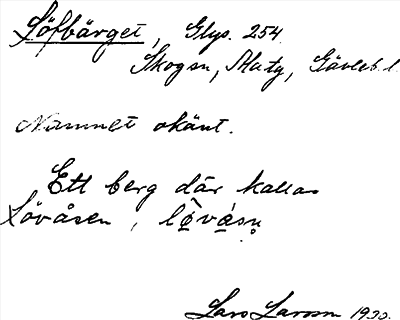 Löfbärget, Glys. 254.
Skogsn, Maty, Gävleb. l.
Namnet okänt.
Ett berg där kallas
Lövåsen, lö̀våsn̥
Lars Larsson 1930.